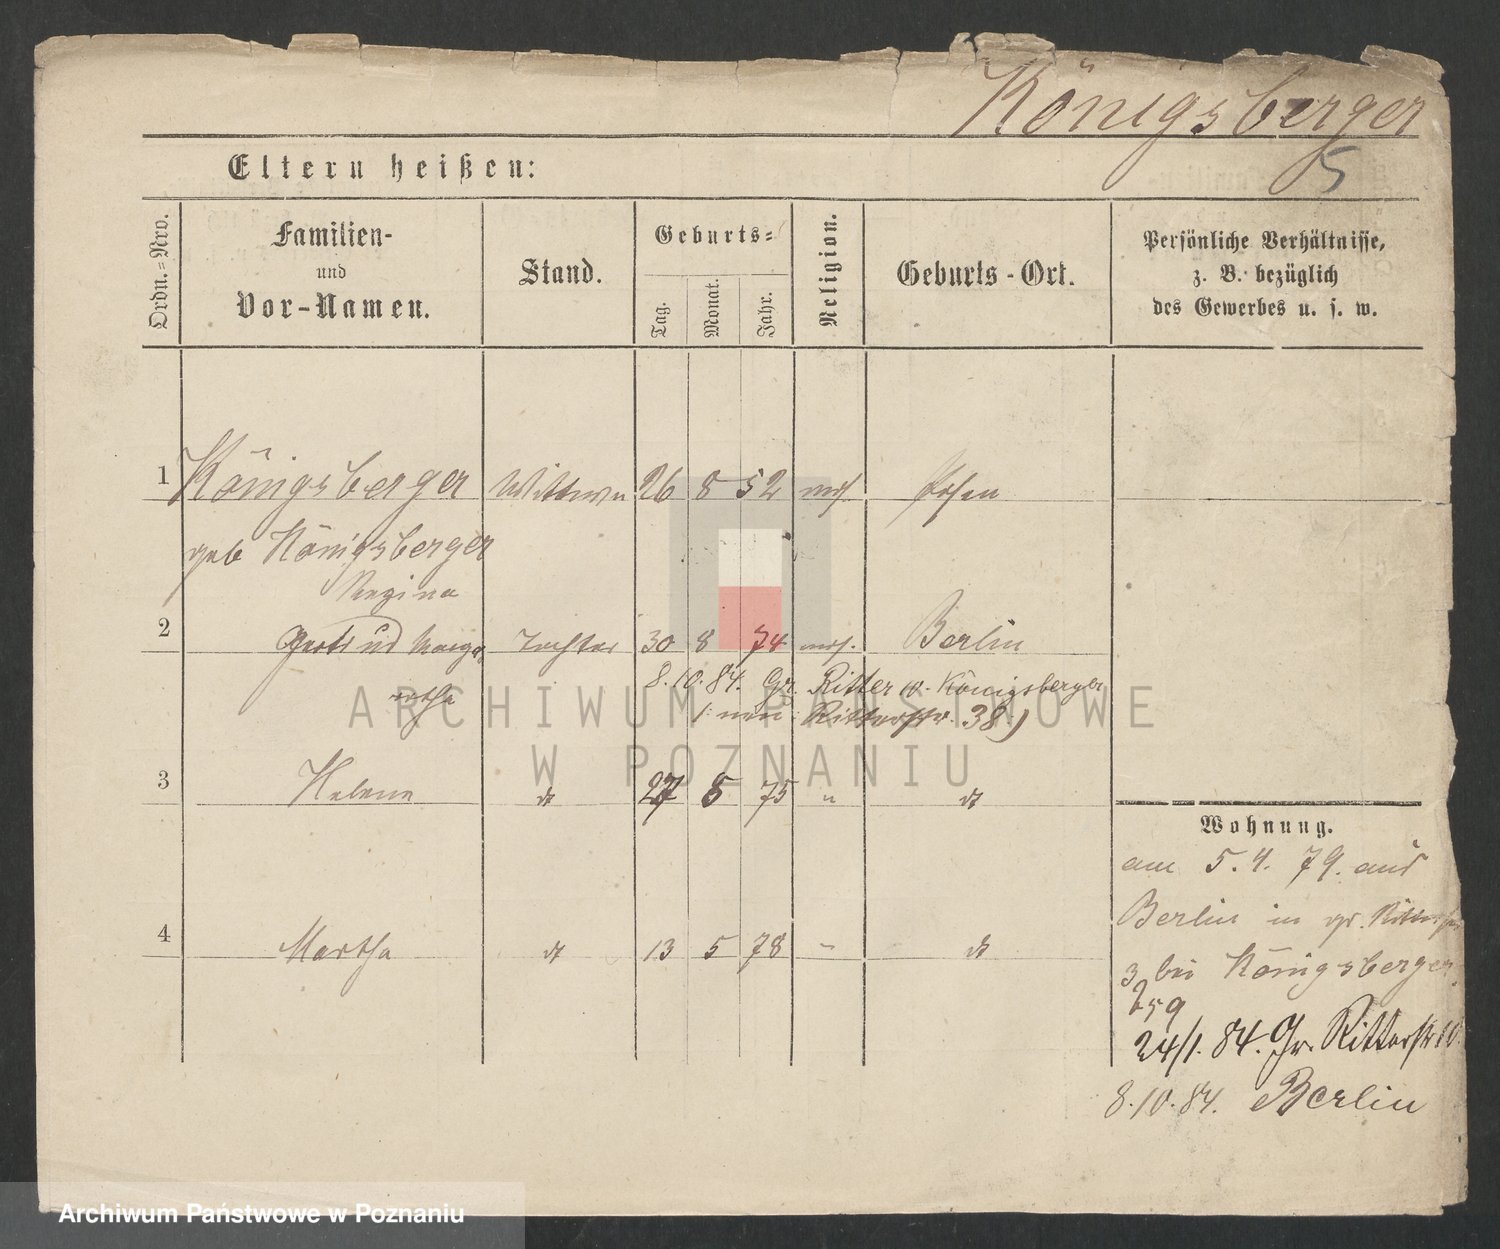 Königsberger
5
Eltern heißen:
Ordn.-Nro.
Familien-
und
Vor-Namen.
Stand.
Geburts-
Tag.
Monat.
Jahr.
Religion.
Geburts-Ort.
Persönliche Verhältnisse,
z. B. bezüglich
des Gewerbes u. s. w.
1 Königsberger Wittwe 26 8 52 mos. Posen
geb Königsberger
Regina
2 Gertrud Marga Tochter 30 8 74 mos. Berlin
rethe
8.10.84. Gr. Ritter 10. Königsberger
Ritterstr. 38.)
3 Helene dt 27 8 75 " dt
4 Martha dt 13 5 78 " dt
Wohnung.
am 5.4.79. aus
Berlin in gr. Ritterstr
3 bei Königsberger
24/1. 84. Gr. Ritterstr 10.
8.10.84. Berlin
ARCHIWUM PAŃSTWOWE
W POZNANIU
Archiwum Państwowe w Poznaniu